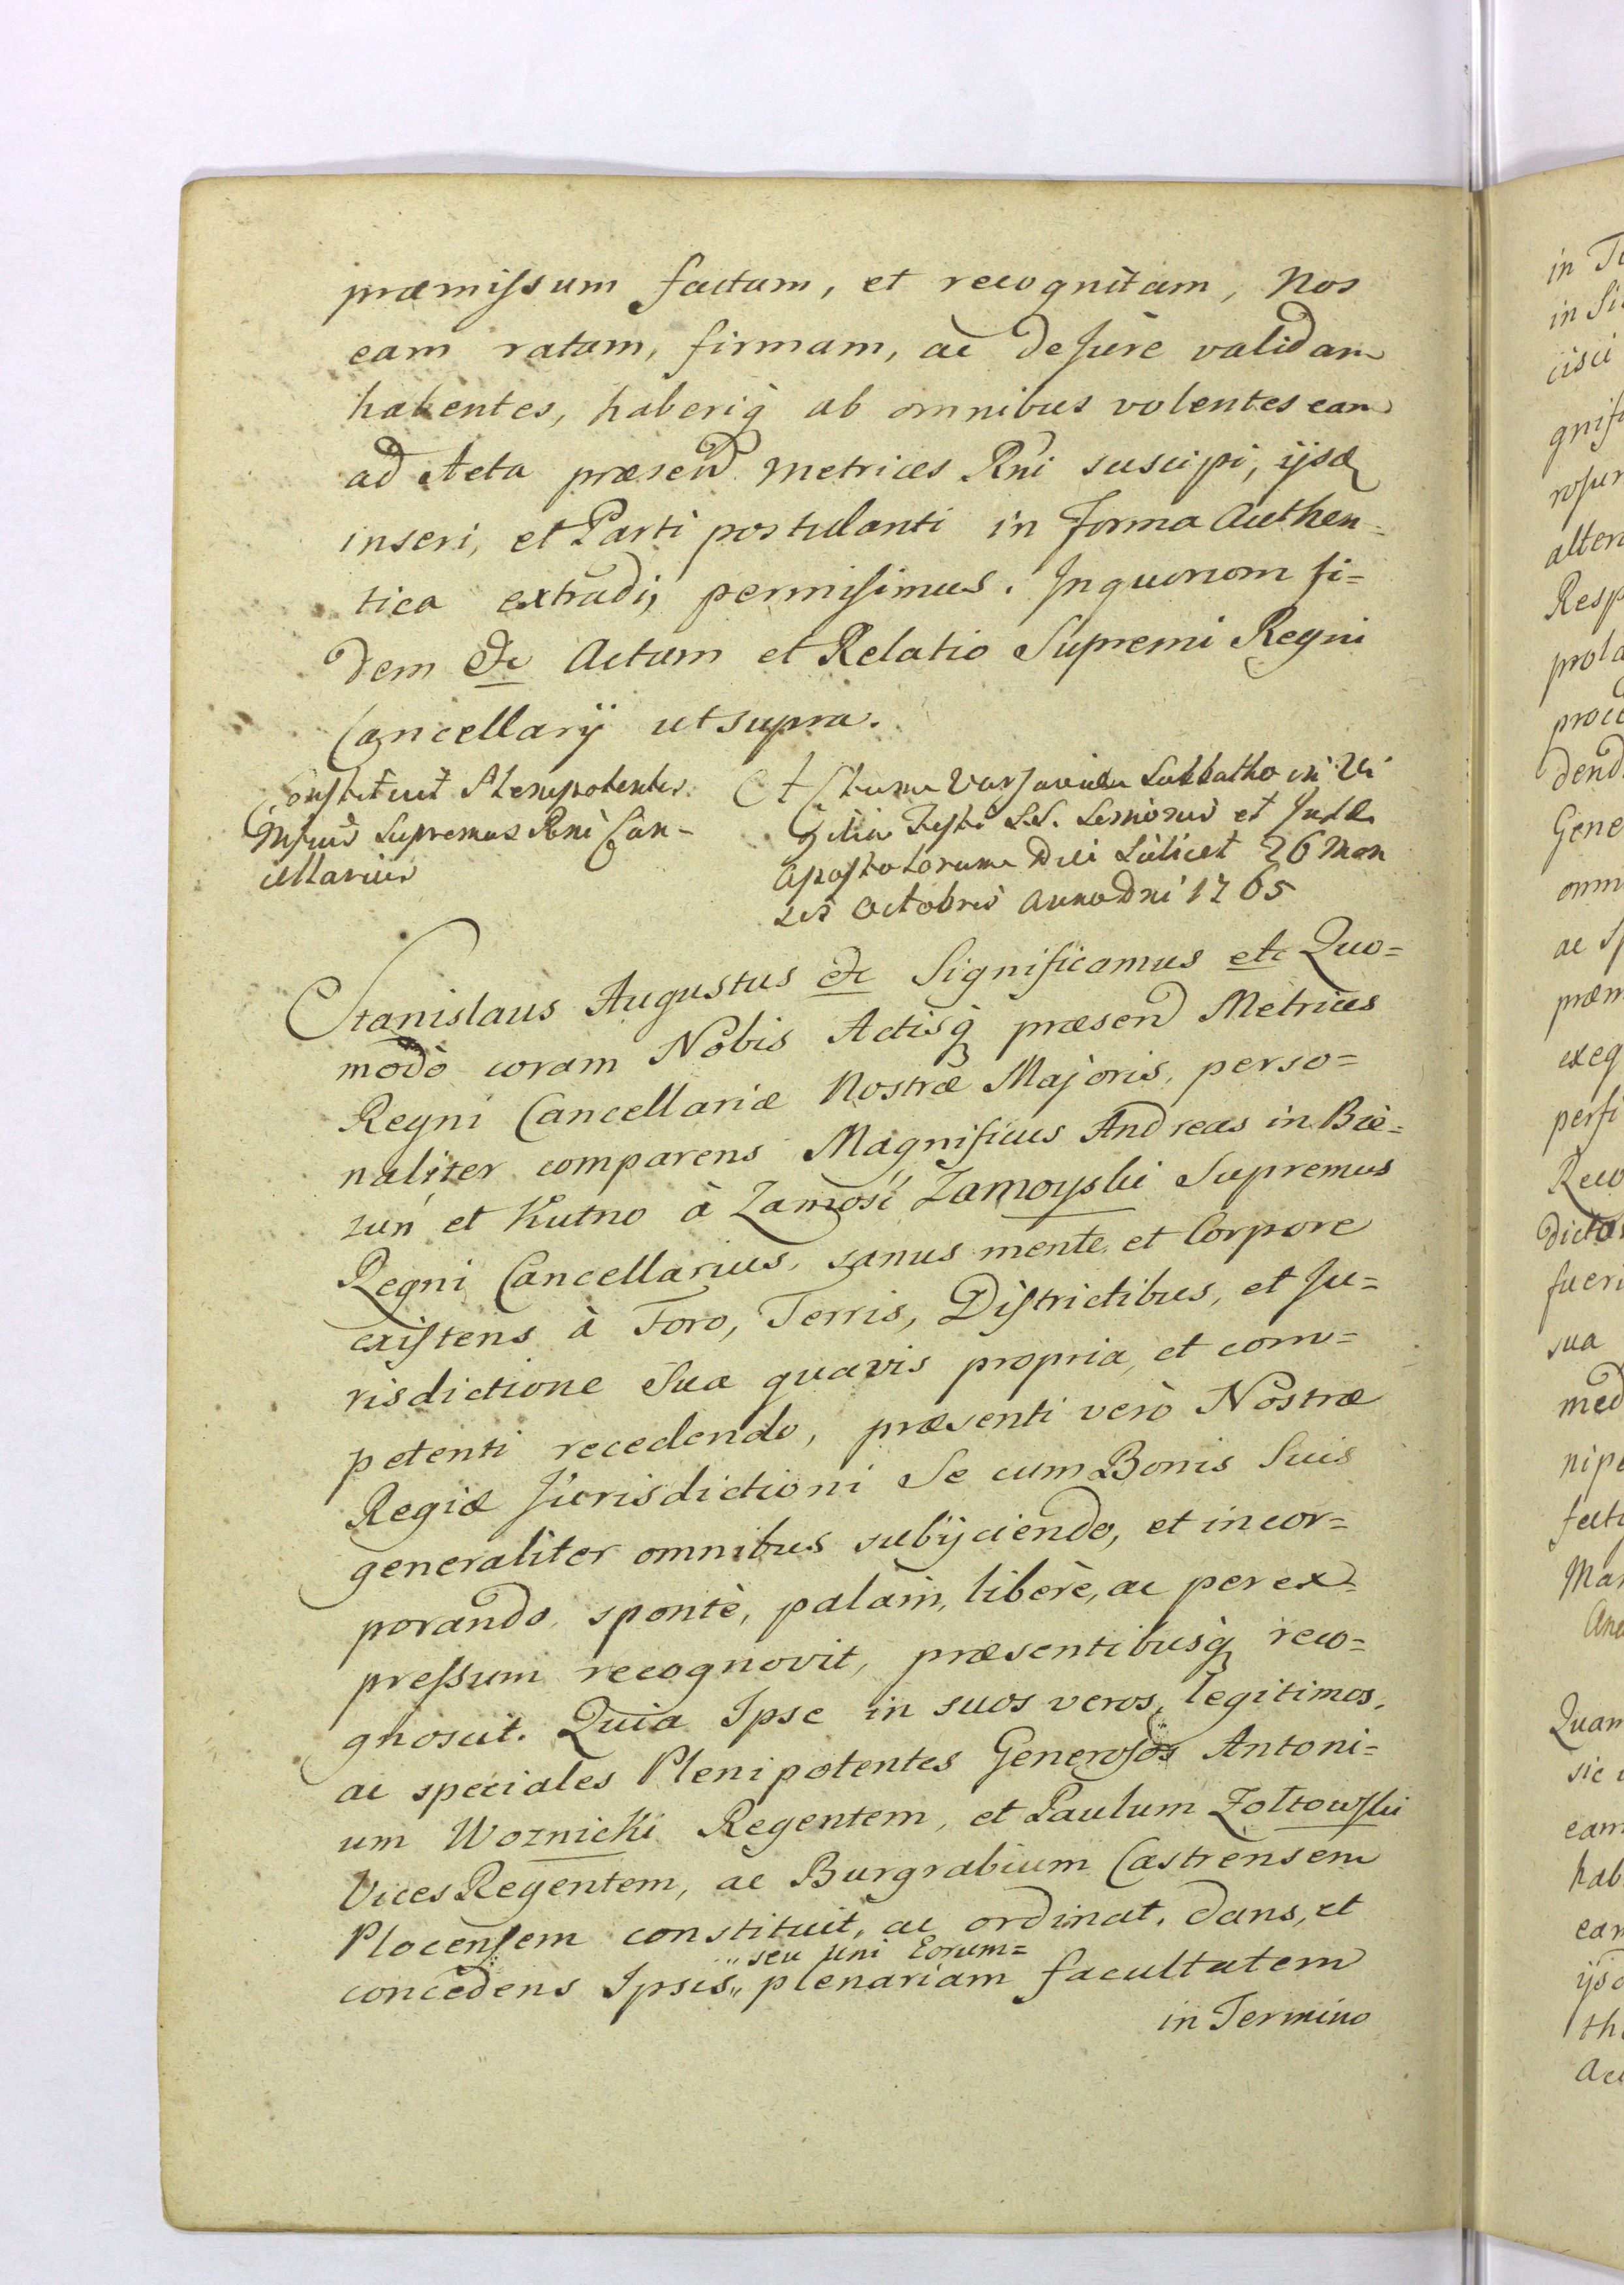 præmiſsum factam, et recognitam, Nos
eam ratam, firmam, ac de Jure validam
habentes, haberiq̀ ab omnibus volentes eam
ad Acta præsend. Metrices Rni suscipi, ijsq̀
inseri, et Parti postulanti in forma Authen=
tica extradi, permiſimus. In quorum fi=
dem &c Actum et Relatio Supremi Regni
Cancellarij ut supra.
Constituit Plenipotentes
Mſicus Supremus Rni Can-
cellarius
Actum Varsaviæ Sabbatho in Vi
gilia Festi S.S. Simonis et Judæ
Apostolorum Diei Scilicet 26 Men
sis Octobris Anno Dni 1765
Stanislaus Augustus &c Significamus etc Quo=
modò coram Nobis Actisq̀ præsend Metrices
Regni Cancellariæ Nostræ Majoris, perso=
naliter comparens Magnificus Andreas in Bie=
zuń et Kutno à Zamość Zamoyski Supremus
Regni Cancellarius, sanus mente et Corpore
existens à Foro, Terris, Districtibus, et Ju=
risdictione Sua quavis propria, et com=
petenti recedendo, præsenti verò Nostræ
Regiæ Jurisdictioni Se cum Bonis Suis
generaliter omnibus subijciendo, et incor=
porando, spontè, palàm, liberè, ac per ex=
preſsum recognovit, præsentibusq̀ reco=
gnoscit. Quia Ipse in suos veros, legitimos,
ac speciales Plenipotentes Generoſos Antoni=
um Woznicki Regentem, et Paulum Zołtowſki
Vices Regentem, ac Burgrabium Castrensem
Plocenſem constituit, ac ordinat, dans, et
„ seu uni Eorum=
concedens Ipsis„ plenariam facultatem
in Termino